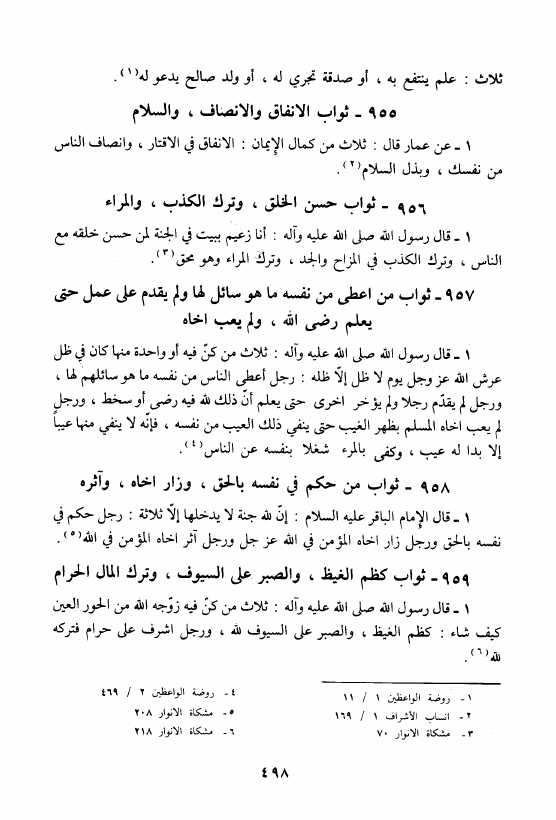 ثلاث : علم ينتفع به ، أو صدقة تجري له ، أو ولد صالح يدعو له(١).
٩٥٥ ـ ثواب الانفاق والانصاف ، والسلام
١ ـ عن عمار قال : ثلاث من كمال الإيمان : الانفاق في الاقتار ، وانصاف الناس
من نفسك ، وبذل السلام(٢).
٩٥٦ ـ ثواب حسن الخلق ، وترك الكذب ، والمراء
١ ـ قال رسول الله صلى الله عليه وآله : أنا زعيم ببيت في الجنة لمن حسن خلقه مع
الناس ، وترك الكذب في المزاح والجد ، وترك المراء وهو محق(٣).
٩٥٧ ـ ثواب من اعطى من نفسه ما هو سائل لها ولم يقدم على عمل حتى
يعلم رضى الله ، ولم يعب اخاه
١ ـ قال رسول الله صلى الله عليه وآله : ثلاث من كنّ فيه أو واحدة منها كان في ظل
عرش الله عز وجل يوم لا ظل إلّا ظله : رجل أعطى الناس من نفسه ما هو سائلهم لها ،
ورجل لم يقدّم رجلا ولم يؤخر اخرى حتى يعلم أنّ ذلك لله فيه رضى أو سخط ، ورجل
لم يعب اخاه المسلم بظهر الغيب حتى ينفي ذلك العيب من نفسه ، فإنّه لا ينفي منها عيباً
إلا بدا له عيب ، وكفى بالمرء شغلا بنفسه عن الناس(٤).
٩٥٨ ـ ثواب من حكم في نفسه بالحق ، وزار اخاه ، وآثره
١ ـ قال الإمام الباقر عليه السلام : إنّ لله جنة لا يدخلها إلّا ثلاثة : رجل حكم في
نفسه بالحق ورجل زار اخاه المؤمن في الله عز جل ورجل آثر اخاه المؤمن في الله(٥).
٩٥٩ ـ ثواب كظم الغيظ ، والصبر على السيوف ، وترك المال الحرام
١ ـ قال رسول الله صلى الله عليه وآله : ثلاث من كنّ فيه زوّجه الله من الحور العين
كيف شاء : كظم الغيظ ، والصبر على السيوف لله ، ورجل اشرف على حرام فتركه
لله(٦).
١ ـ روضة الواعظين ١ / ١١
٢ ـ انساب الأشراف ١ / ١٦٩
٣ ـ مشكاة الانوار ٧٠
٤ ـ روضة الواعظين ٢ / ٤٦٩
٥ ـ مشكاة الانوار ٢٠٨
٦ ـ مشكاة الانوار ٢١٨
٤٩٨